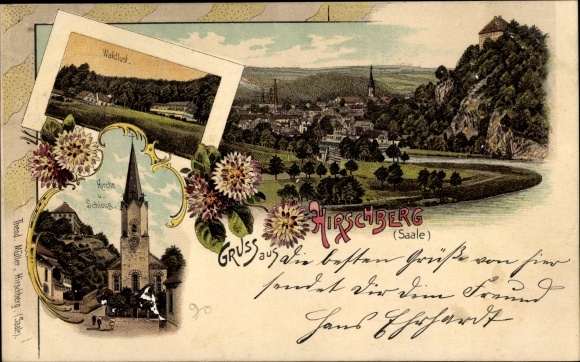 Waldlust.
Kirche
u.
Schloss.
Gruss aus
Hirschberg
(Saale)
Die besten Grüße von hier
sendet Dir dein Freund
Hans Ehrhardt
90
Theod. Müller, Hirschberg (Saale).